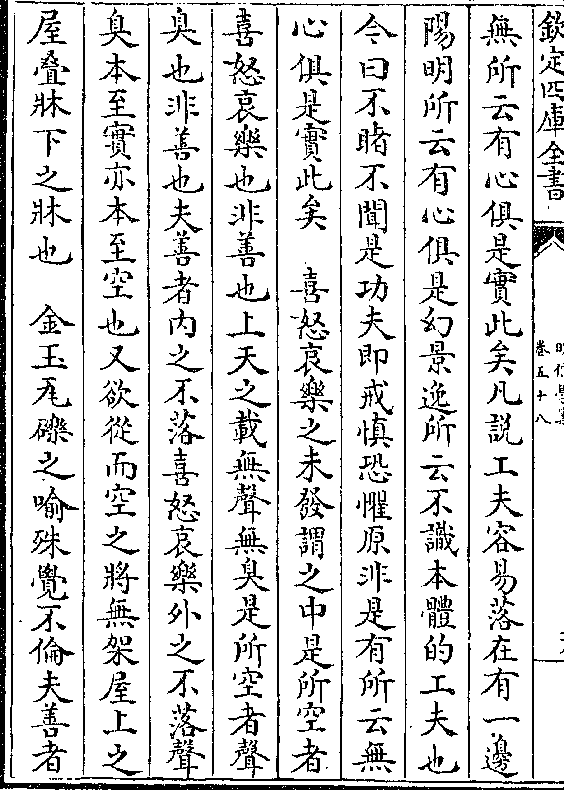 欽定四庫全書
卷五十八
無所云有心俱是實此矣凡說工夫容易落在有一邊
陽明所云有心俱是幻景逸所云不識本體的工夫也
今曰不睹不聞是功夫即戒慎恐懼原非是有所云無
心俱是實此矣　喜怒哀樂之未發謂之中是所空者
喜怒哀樂也非善也上天之載無聲無臭是所空者聲
臭也非善也夫善者内之不落喜怒哀樂外之不落聲
臭本至實亦本至空也又欲從而空之將無架屋上之
屋疊牀下之牀也　金玉瓦礫之喻殊覺不倫夫善者